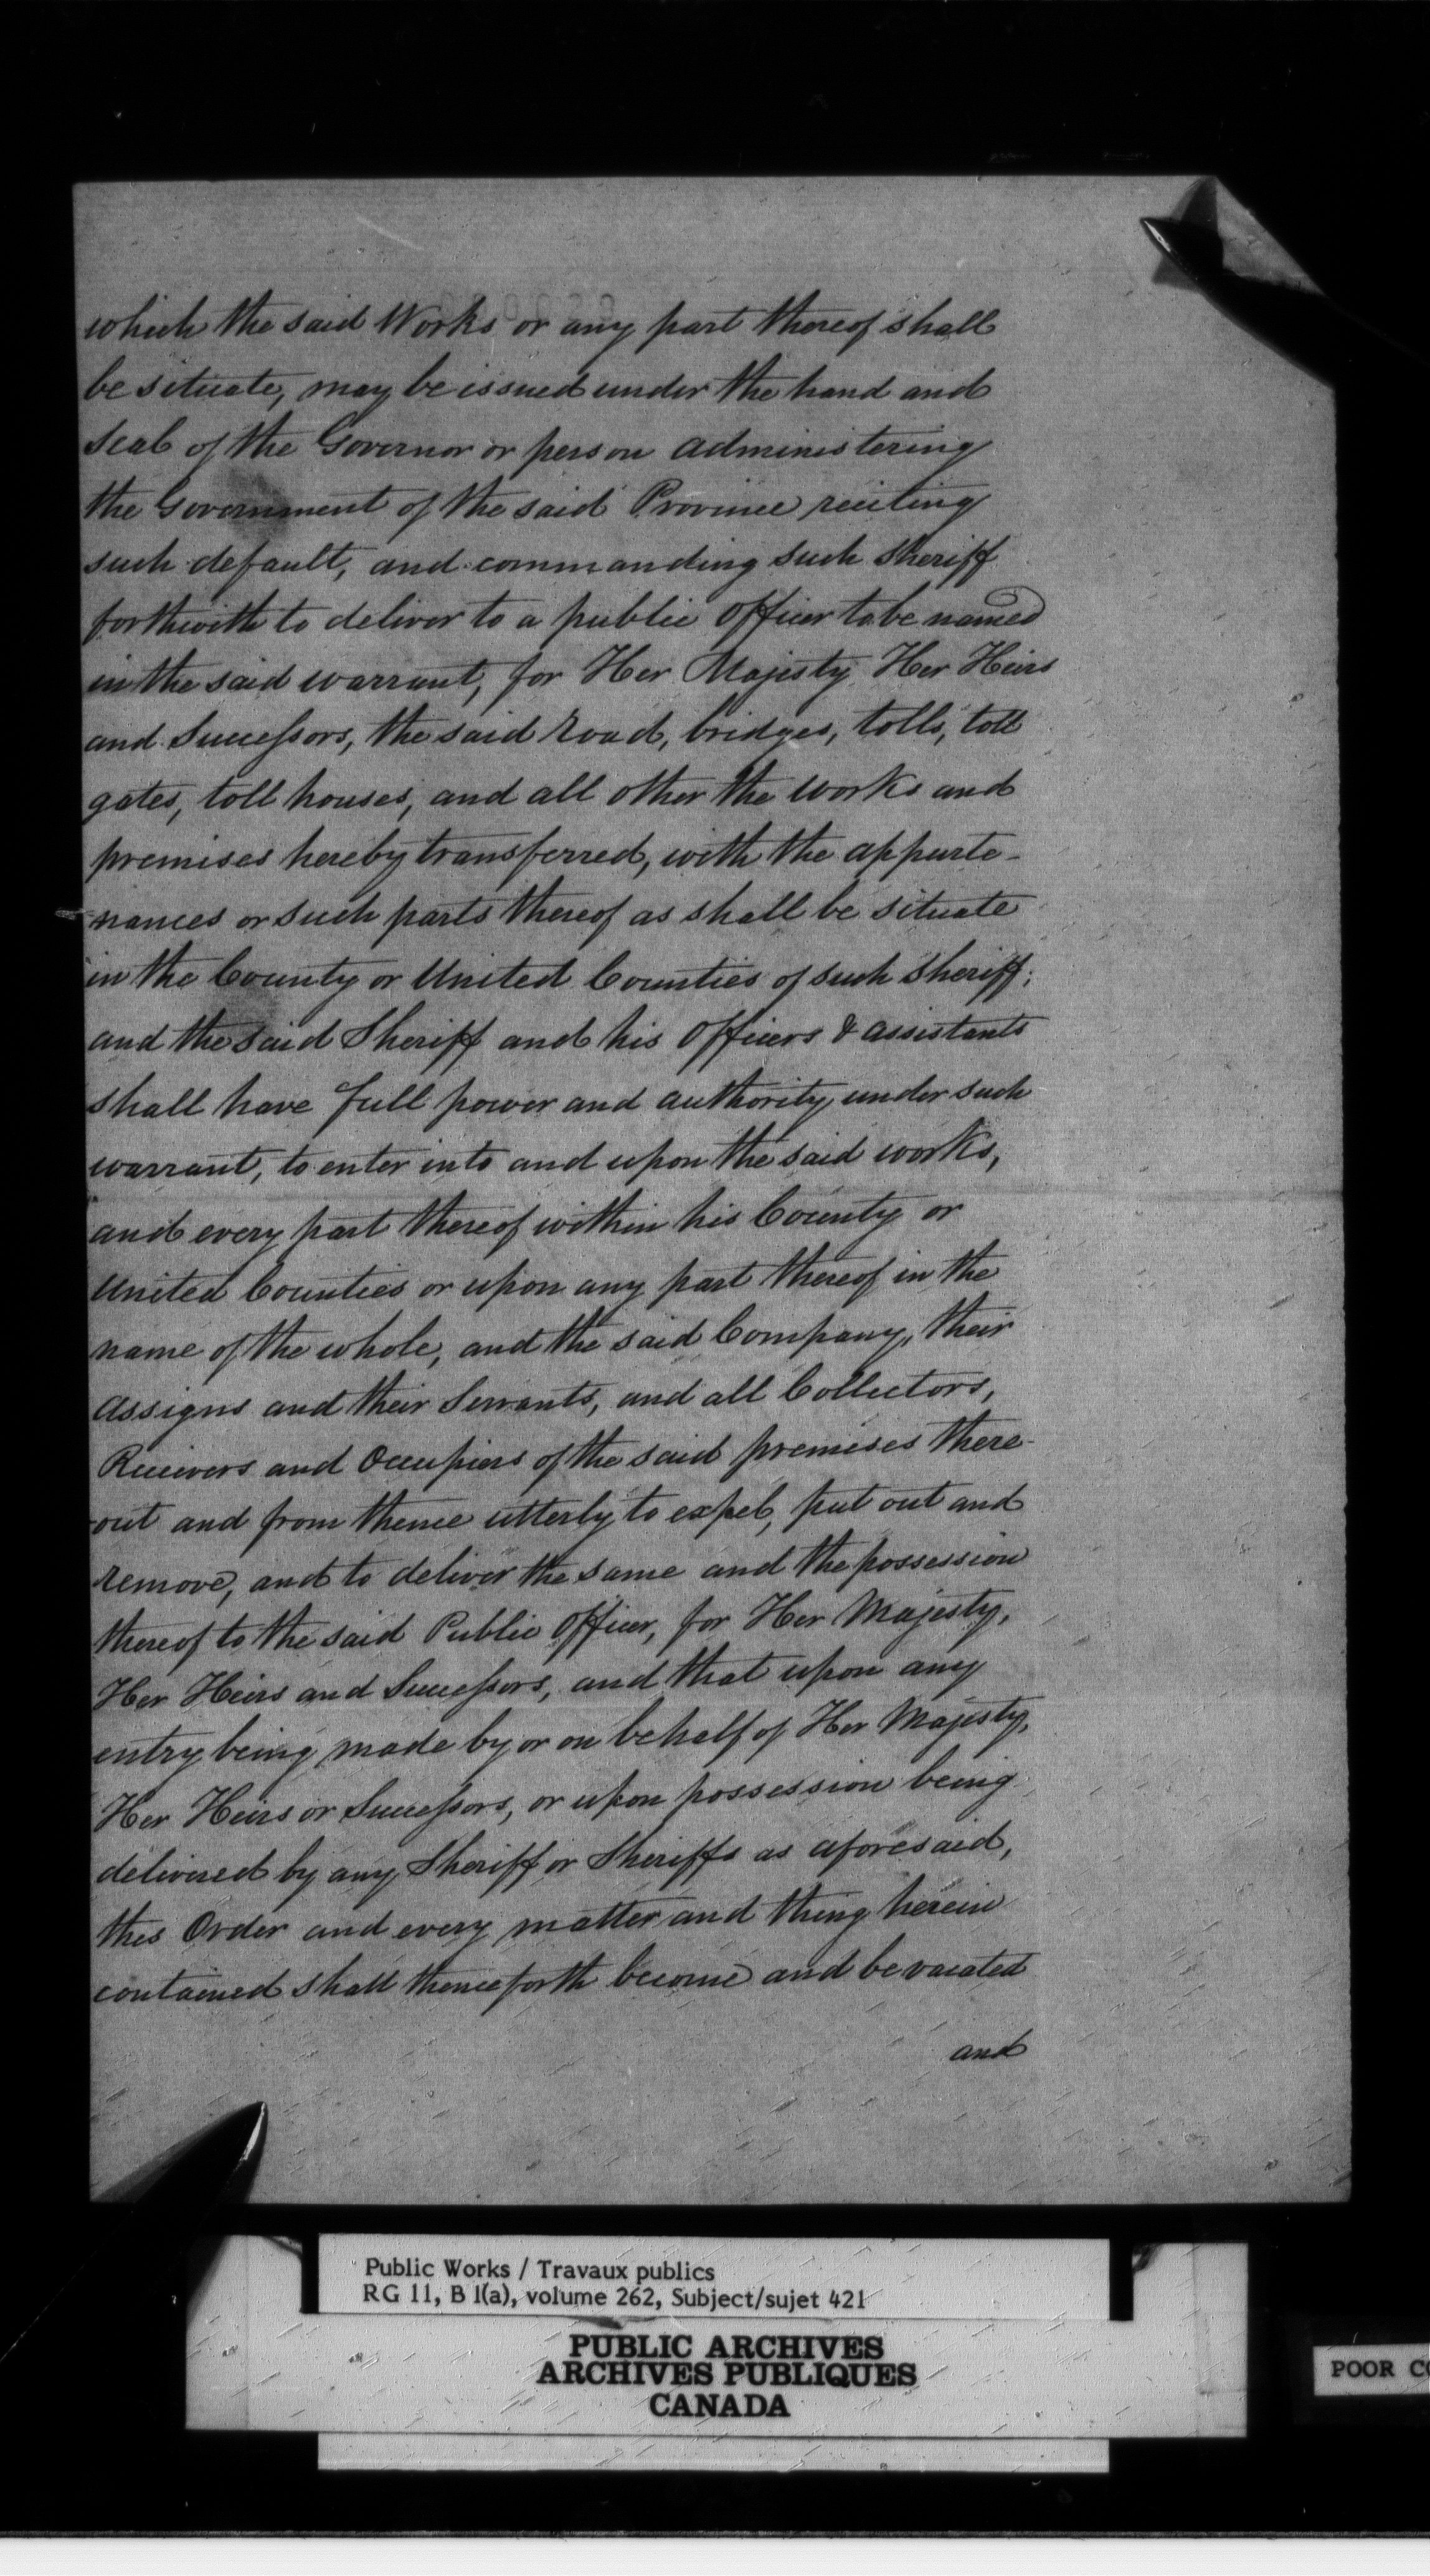 which the said Works or any part thereof shall
be situate, may be issued under the hand and
Seal of the Governor or person administering
the Government of the said Province reciting
such default, and commanding such Sheriff
forthwith to deliver to a public Officer to be named
in the said warrant, for Her Majesty Her Heirs
and Successors, the said road, bridges, tolls, toll
gates, toll houses, and all other the works and
premises hereby transferred, with the appurte-
nances or such parts thereof as shall be situate
in the County or United Counties of such Sheriff;
and the said Sheriff and his Officers & assistants
shall have full power and authority under such
warrant, to enter into and upon the said works,
and every part thereof within his County or
United Counties or upon any part thereof in the
name of the whole, and the said Company, their
assigns and their Servants, and all Collectors,
Receivers and Occupiers of the said premises there-
out and from thence utterly to expel, put out and
remove, and to deliver the same and the possession
thereof to the said Public Officer, for Her Majesty,
Her Heirs and Successors, and that upon any
entry being made by or on behalf of Her Majesty,
Her Heirs or Successors, or upon possession being
delivered by any Sheriff or Sheriffs as aforesaid,
this Order and every matter and thing herein
contained shall thenceforth become and be vacated
and
Public Works / Travaux publics
RG 11, B 1(a), volume 262, Subject/sujet 421
PUBLIC ARCHIVES
ARCHIVES PUBLIQUES
CANADA
POOR